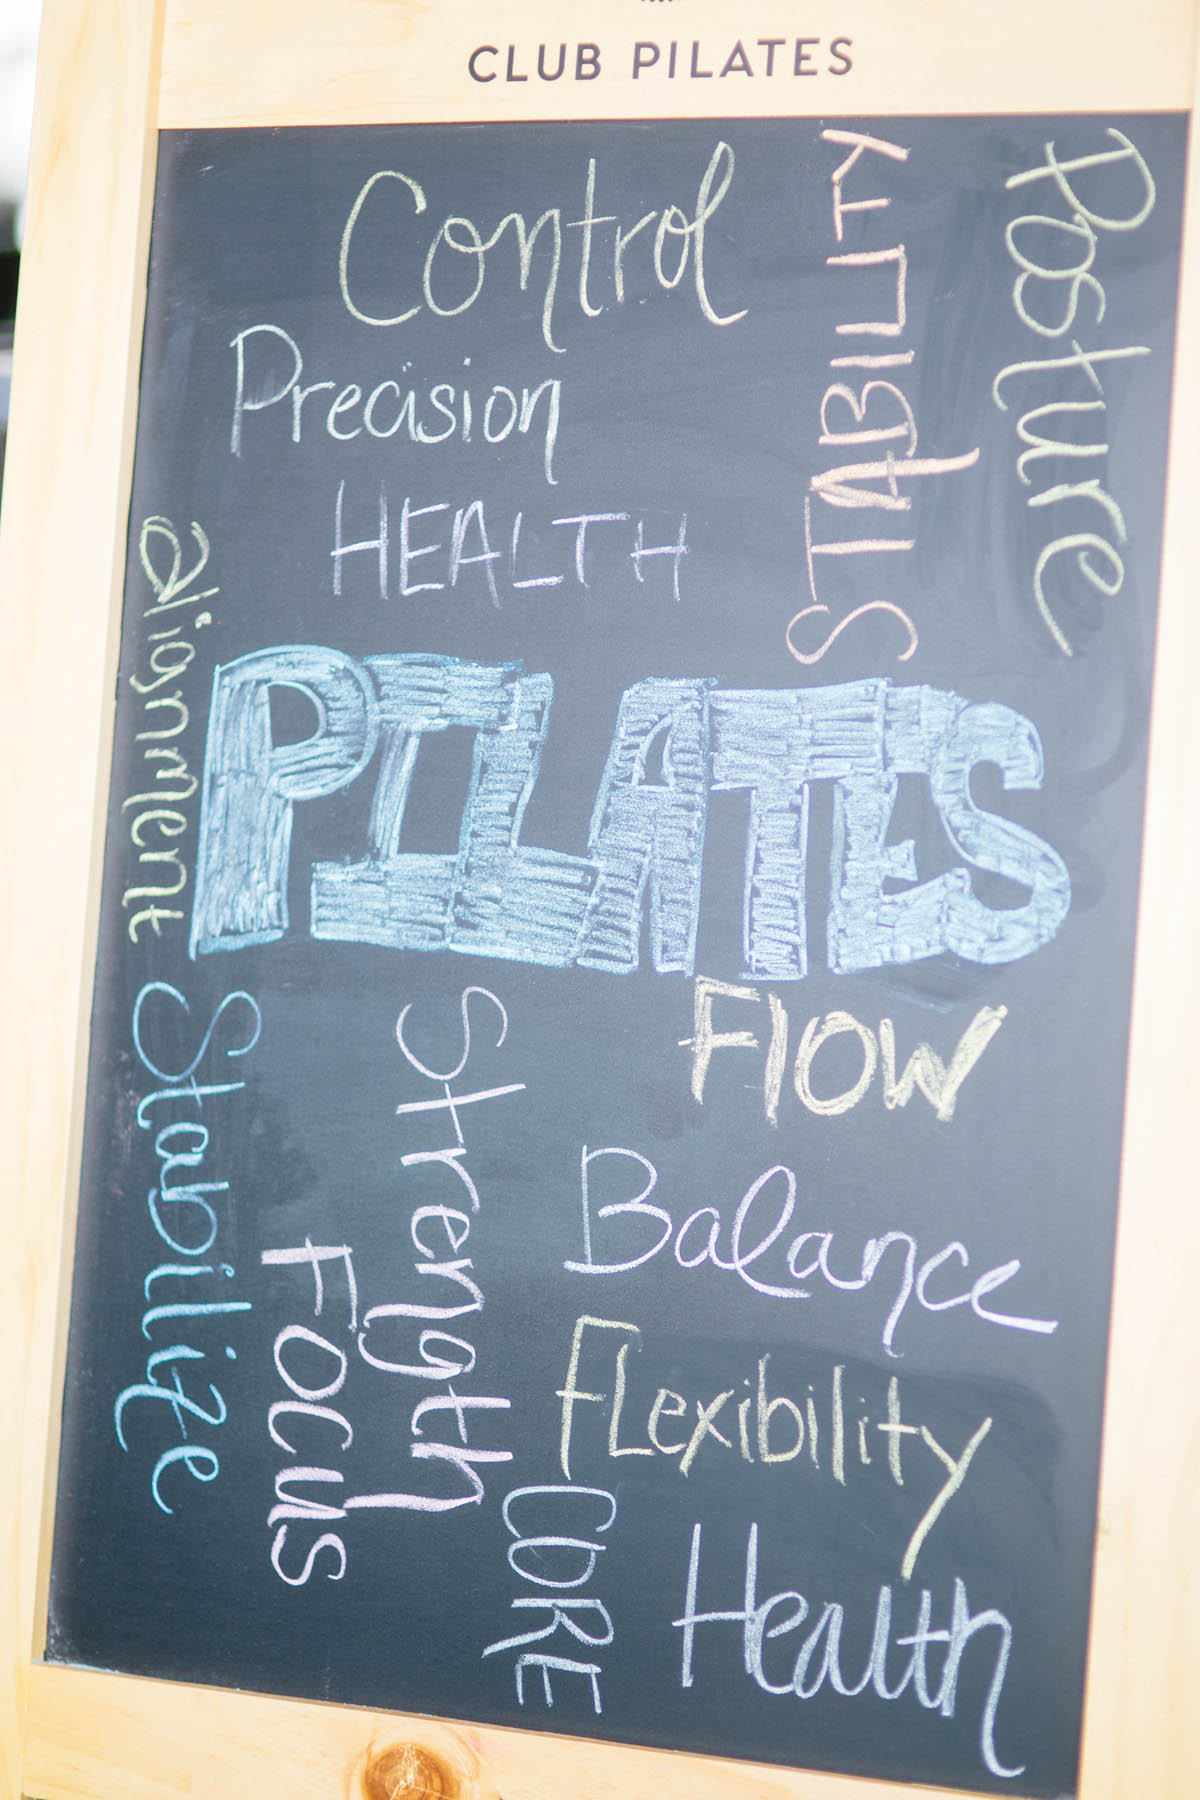 CLUB PILATES
Control
STABILITY
Posture
Precision
HEALTH
alignment
PILATES
FlOW
Stabilize
Strength
Balance
FOCUS
FLexibility
CORE
Health